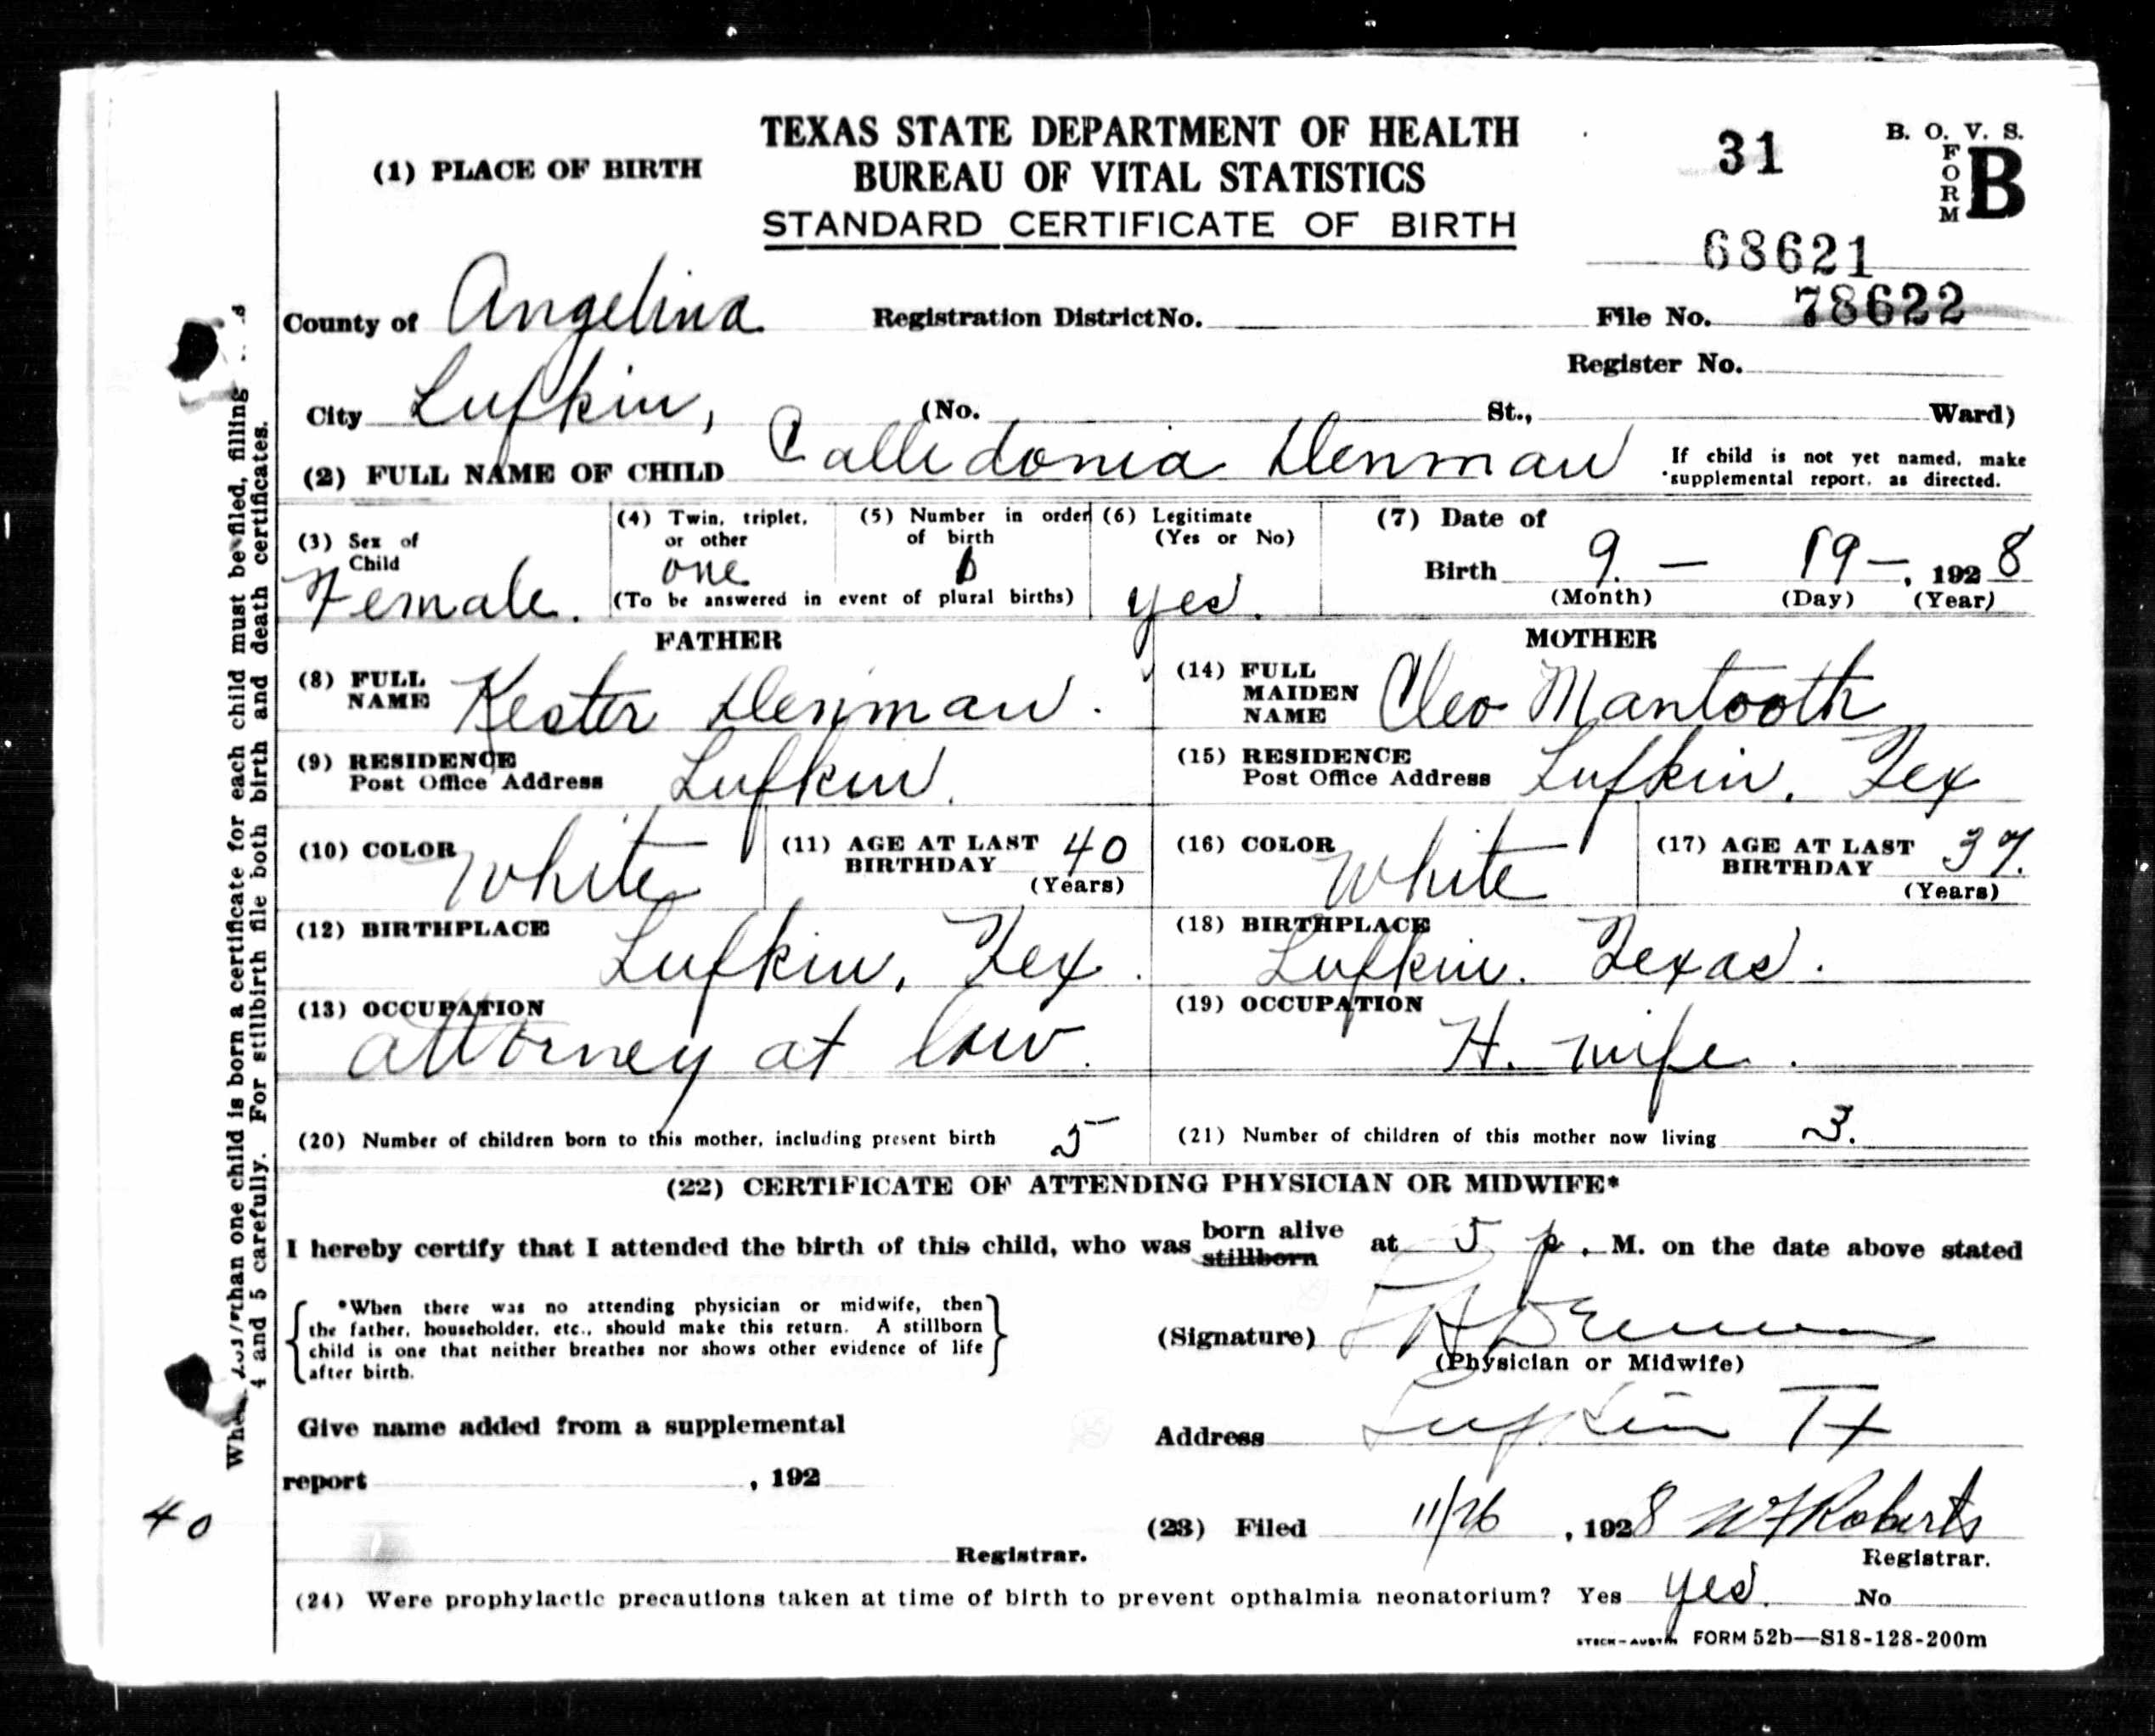 TEXAS STATE DEPARTMENT OF HEALTH
BUREAU OF VITAL STATISTICS
STANDARD CERTIFICATE OF BIRTH
31
B. O. V. S.
FORM B
(1) PLACE OF BIRTH
68621
County of Angelina Registration District No. File No. 78622
Register No.
City Lufkin, (No. St., Ward)
(2) FULL NAME OF CHILD Calledonia Denman
If child is not yet named, make
supplemental report, as directed.
(3) Sex of Child Female.
(4) Twin, triplet, or other one
(5) Number in order of birth
(To be answered in event of plural births)
(6) Legitimate (Yes or No) yes.
(7) Date of Birth 9. — 19 —, 1928
(Month) (Day) (Year)
FATHER
(8) FULL NAME Kester Denman.
(9) RESIDENCE
Post Office Address Lufkin.
(10) COLOR White
(11) AGE AT LAST BIRTHDAY 40
(Years)
(12) BIRTHPLACE Lufkin, Tex.
(13) OCCUPATION
attorney at law.
MOTHER
(14) FULL MAIDEN NAME Cleo Mantooth
(15) RESIDENCE
Post Office Address Lufkin, Tex
(16) COLOR White
(17) AGE AT LAST BIRTHDAY 37.
(Years)
(18) BIRTHPLACE
Lufkin. Texas.
(19) OCCUPATION
H. wife.
(20) Number of children born to this mother, including present birth 5
(21) Number of children of this mother now living 3.
(22) CERTIFICATE OF ATTENDING PHYSICIAN OR MIDWIFE*
I hereby certify that I attended the birth of this child, who was born alive stillborn at 5 p. M. on the date above stated
*When there was no attending physician or midwife, then
the father, householder, etc., should make this return. A stillborn
child is one that neither breathes nor shows other evidence of life
after birth.
(Signature)
(Physician or Midwife)
Give name added from a supplemental
report , 192
Address Lufkin Tx
(23) Filed 11/26, 1928 W F Roberts
Registrar.
Registrar.
(24) Were prophylactic precautions taken at time of birth to prevent opthalmia neonatorium? Yes yes. No
STECK-AUSTIN FORM 52b—S18-128-200m
than one child is born a certificate for each child must be filed, filling
4 and 5 carefully. For stillbirth file both birth and death certificates.
40